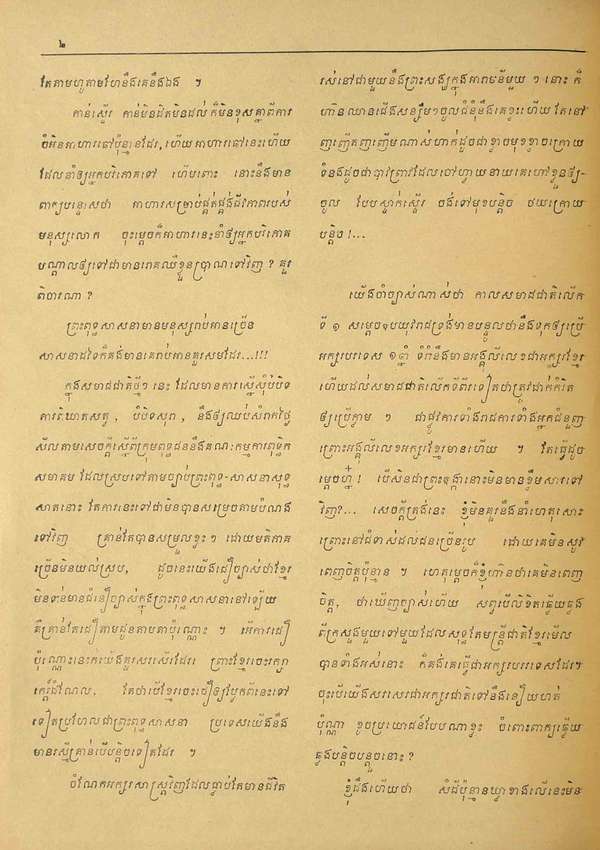 ២
តែតាមហូតាមហែនឹងគេនឹងឯង ។
កាន់ស្មើរ កាន់មិនដិតមិនដល់ ក៏មិនខុសគ្នាពីការ
ចំអិនអាហារឆៅប៉ុន្មានដែរ, ហើយអាហារឆៅនេះហើយ
ដែលនាំឲ្យអ្នកបរិភោគទៅ ហើមពោះ នោះនឹងមាន
ពាក្យបន្ទោសថា អាហារសម្រាប់ផ្គត់ផ្គង់ជីវភាពរបស់
មនុស្សលោក ចុះម្ដេចក៏អាហារនេះនាំឲ្យអ្នកបរិភោគ
បណ្ដាលឲ្យទៅជាមានរោគឈឺខ្លួនប្រាណទៅវិញ ? គួរ
ពិចារណា ?
ព្រះពុទ្ធសាសនាមានមនុស្សរាប់អានច្រើន
សាសនាដទៃក៏គង់មានគេរាប់អានគួរសមដែរ...!!!
ក្នុងសមាជជាតិថ្មីៗ នេះ ដែលមានការស្នើសុំបំបិទ
ការពិឃាតសត្វ, បំបិទសុរា, នឹងឲ្យឈប់សំរាកថ្ងៃ
សីលតាមសេចក្ដីស្នើពីក្រុមពុទ្ធជននឹងគណៈកម្មការពុទ្ធិក
សមាគម ដែលស្របទៅតាមច្បាប់ព្រះពុទ្ធ-សាសនាសុទ្ធ
សាតនោះ តែការនេះទៅជាមិនបានសម្រេចតាមបំណង
ទៅវិញ គ្រាន់តែបានសម្រួលខ្លះៗ ដោយមតិភាគ
ច្រើនមិនយល់ស្រប, ដូចនេះយើងជឿច្បាស់ថាខ្មែរ
មិនទន់មានជំនឿច្បាស់ក្នុងព្រះពុទ្ធសាសនានៅឡើយ
គឺគ្រាន់តែជឿតាមដូនតាមតាប៉ុណ្ណោះ ។ អីការជឿ
ប៉ុណ្ណោះនេះកយើងគួរសរសើរដែរ ព្រោះខ្មែរចេះរក្សា
កេរ្ដិ៍ដំណែល, តែថាបើខ្មែរចេះជឿឲ្យបែកពីនេះទៅ
ទៀតប្រហែលជាព្រះពុទ្ធសាសនា ប្រទេសយើងនឹង
មានរស្មីគ្រាន់បើបន្តិចទៀតដែរ ។
ចំណែកអក្សរសាស្ត្រវិញដែលធ្លាប់តែមានជីវិត
រស់នៅជាមួយនឹងព្រះសង្ឃក្នុងអារាមនីមួយៗ នោះ ក៏
ហ៊ានឈានជើងសន្សឹមៗចូលជំនុំនឹងគេខ្លះហើយ តែនៅ
ញញើតញញើមណាស់ហាក់ដូចជាខ្លាចមុខខ្លាចក្រោយ
ទំនងដូចជាបាវព្រាវដែលចៅហ្វាយនាយគេហៅខ្លួនឲ្យ-
ចូល បែបស្ទាក់ស្ទើរ ចង់ទៅមុខបន្តិច ថយក្រោយ
បន្តិច !...
យើងចាំច្បាស់ណាស់ថា កាលសមាជជាតិលើក
ទី ១ សម្ដេចឧបយុវរាជទ្រង់មានបន្ទូលថានឹងទុកឲ្យប្រើ
អក្សរបរទេស ១ឆ្នាំ ទំរាំនឹងមានអង្គុលីលេខជាអក្សរខ្មែរ
ហើយដល់សមាជជាតិលើកទីពីរទៀតថាត្រូវដាក់កំរិត
ឲ្យប្រើភ្លាម ។ ជាផ្លូវការទាំងរាជការទាំងអ្នកជំនួញ
ព្រោះអង្គុលីលេខអក្សរខ្មែរមានហើយ ។ តែធ្វើដូច
ម្ដេចហ្ន៎ ! បើសិនជាព្រះចង្កានោះមិនមានខ្លឹមសារទៅ
វិញ?... សេចក្ដីត្រង់នេះ ខ្ញុំមិនគួរនឹងនាំហេតុសោះ
ព្រោះនៅជំទាស់ដល់ជនច្រើនរូប ដោយគេមិនសូវ
ពេញចិត្តប៉ុន្មាន ។ ហេតុម្ដេចក៏ខ្ញុំហ៊ានថាគេមិនពេញ
ចិត្ត, ថាឃើញច្បាស់ហើយ សព្វបើលិខិតឆ្លើយឆ្លង
ពីក្រសួងមួយទៅមួយដែលសុទ្ធតែមន្ត្រីជាតិខ្មែរមើល
បានទាំងអស់នោះ ក៏គង់គេធ្វើជាអក្សរបរទេសដែរ។
ចុះបើយើងសរសេរជាអក្សរជាតិទៅនឹងនឿយហត់
ប៉ុណ្ណា ខូចប្រយោជន៍បែបណាខ្លះ ចំពោះពាក្យឆ្លើយ
ឆ្លងបន្តិចបន្តួចនោះ ?
ខ្ញុំដឹងហើយថា សំដីប៉ុន្មានឃ្លាខាងលើនេះមិន